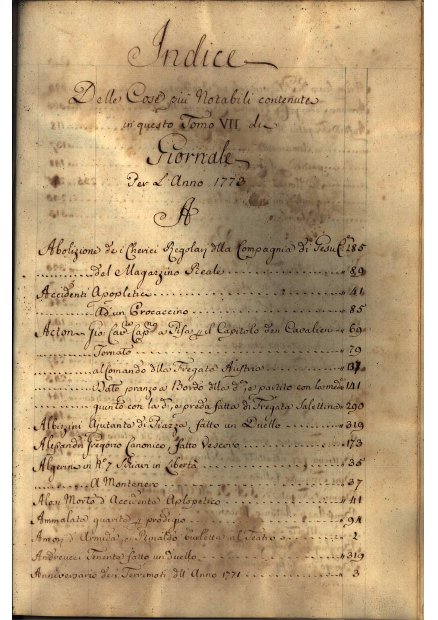 Indice
Delle Cose più Notabili contenute
in questo Tomo VII di
Giornale
Per L'Anno 1773
A
Abolizione de i Cherici Regolari dlla Compagnia di Gesù C.e 285
del Magazzino Reale " 89
Accidenti Apopletici " 41
Ad un Procaccino " 85
Acton Gio. Cav. Cap. a Pisa il Capitolo dei Cavalieri " 69
Tornato " 79
al Comando dlla Fregata Austria " 137
Dato pranzo a Bordo dlla da e partito con la med. " 141
giunto con la da, e preda fatta di Fregata Salettina " 290
Albizini Ajutante di Piazza fatto un Duello " 319
Alesandri Gregorio Canonico, fatto Vescovo " 173
Algerini in N.o 7 Schiavi in Libertà " 35
A Montenero " 37
Morto d'Accidente Aplopetico " 41
Ammalato guarito prodigio " 94
Amori d'Armida, e Rinaldo burletta al Teatro " 2
Andreucci Tenente fatto un duello " 319
Anniversario dei Terremoti dll'Anno 1771 " 3